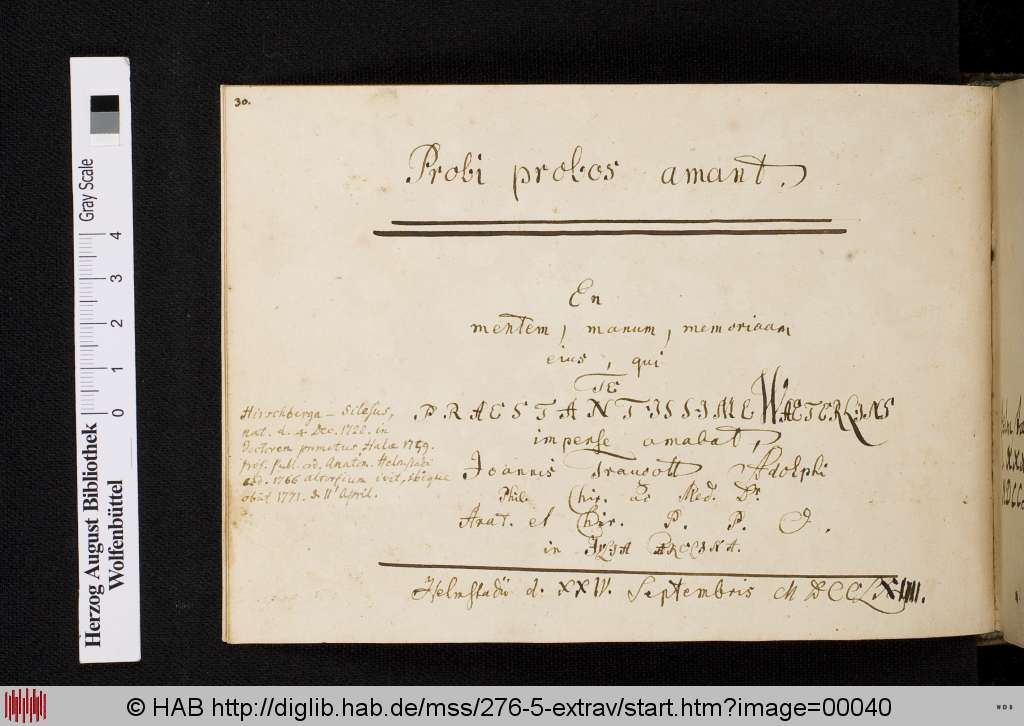 30.
Probi probos amant.
En
mentem, manum, memoriam
eius, qui
TE
PRAESTANTISSIME WAETERLING
impense amabat,
Joannis Traugott Adolphi
Phil. Chir. ac Med. Dr.
Anat. et Chir. P. P. O.
in
Helmstadii d. XXIV. Septembris MDCCLXIIII.
Hirschberga-Silesus,
nat. d. 4 Dec. 1728. in
Doctorem promotus Halae 1759.
prof. publ. ord. Anatom. Helmstadi
1766 Altorfium ivit, ibique
obiit 1771. d. 11 April.
Herzog August Bibliothek
Wolfenbüttel
Gray Scale
0 1 2 3 4
© HAB http://diglib.hab.de/mss/276-5-extrav/start.htm?image=00040
HAB